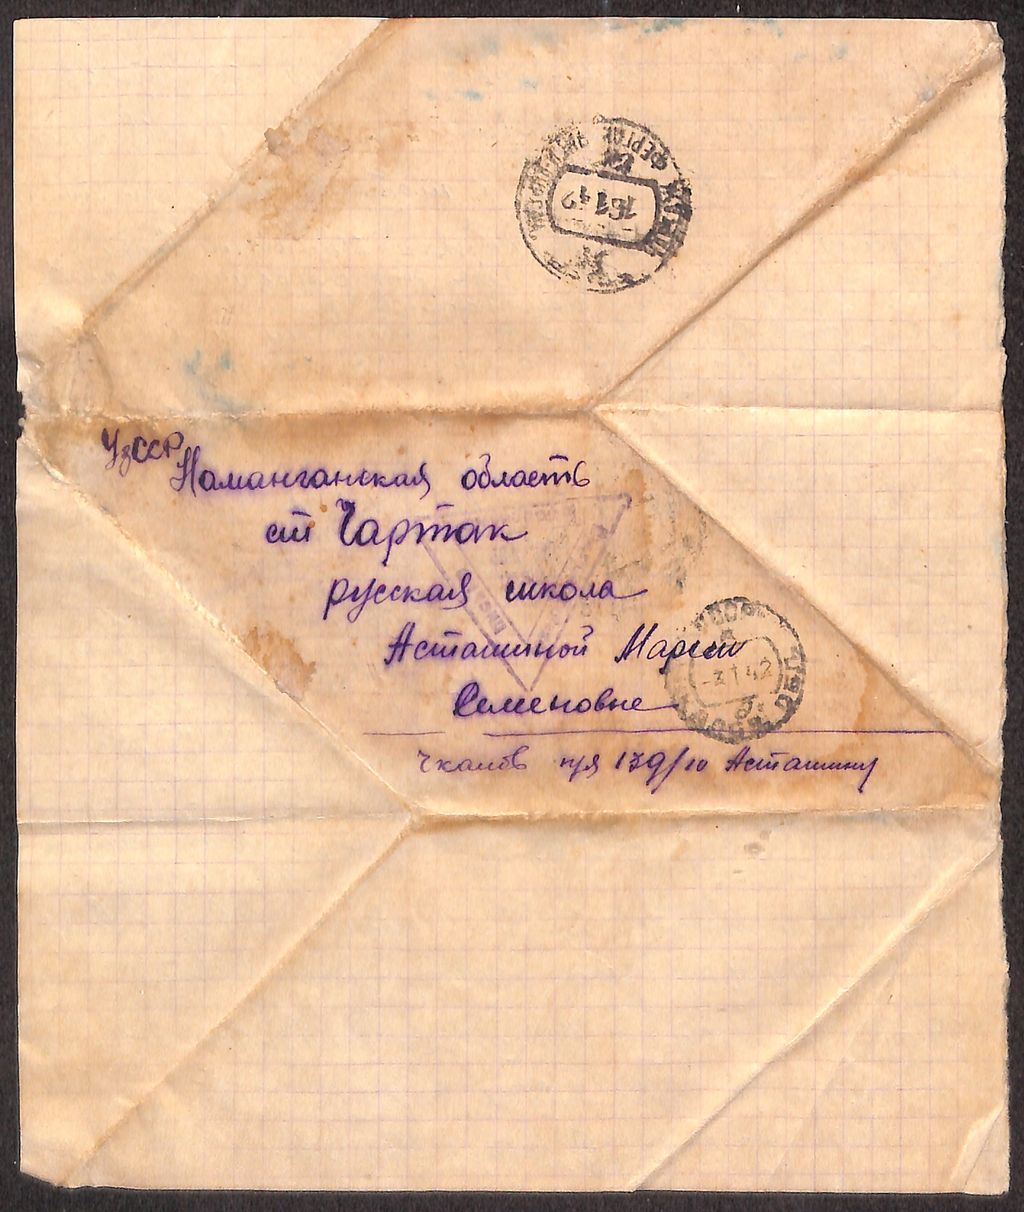 16 1 42
УзССР
Наманганская область
ст Чартак
русская школа
Асташиной Марии
Семеновне
-3 1 42
Чкалов п/я 139/10 Асташину